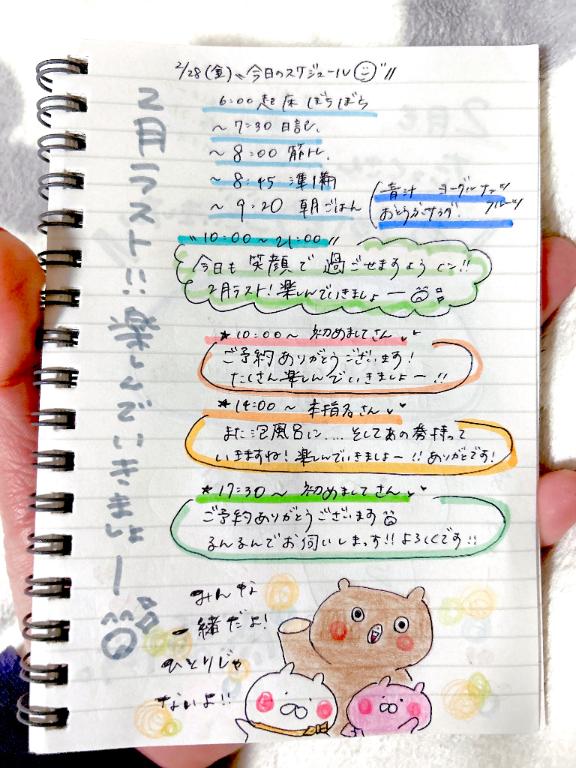 2/28(金)〜今日のスケジュール
6:00 起床 ぼちぼち
〜7:30 日記、
〜8:00 筋トレ、
〜8:45 準備
〜9:20 朝ごはん
青汁 ヨーグルナッツ
フルーツ
おとうふサラダ.
10:00〜21:00
今日も笑顔で過ごせますように!!
2月ラスト!楽しんでいきましょー
★10:00〜 初めましてさん
ご予約ありがとうございます!
たくさん楽しんでいきましょー!!
★14:00〜 本指名さん
また泡風呂に....そしてあの 持って
いきますね!楽しんでいきましょー!!ありがとです!
★17:30〜 初めましてさん
ご予約ありがとうございます
るんるんでお伺いしまっす!!よろしくです!!
2月ラスト!!楽しんでいきましょー
みんな
一緒だよ!
ひとりじゃ
ないよ!!